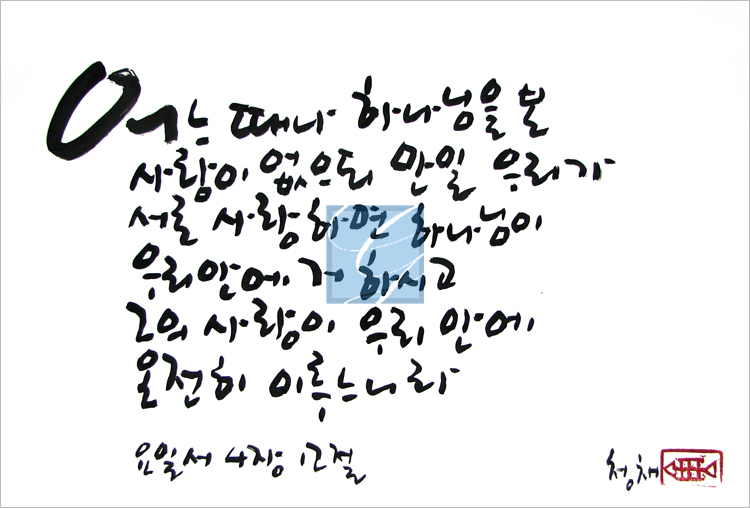 어느 때나 하나님을 본
사람이 없으되 만일 우리가
서로 사랑하면 하나님이
우리 안에 거하시고
그의 사랑이 우리 안에
온전히 이루느니라
요일서 4장 12절
청채